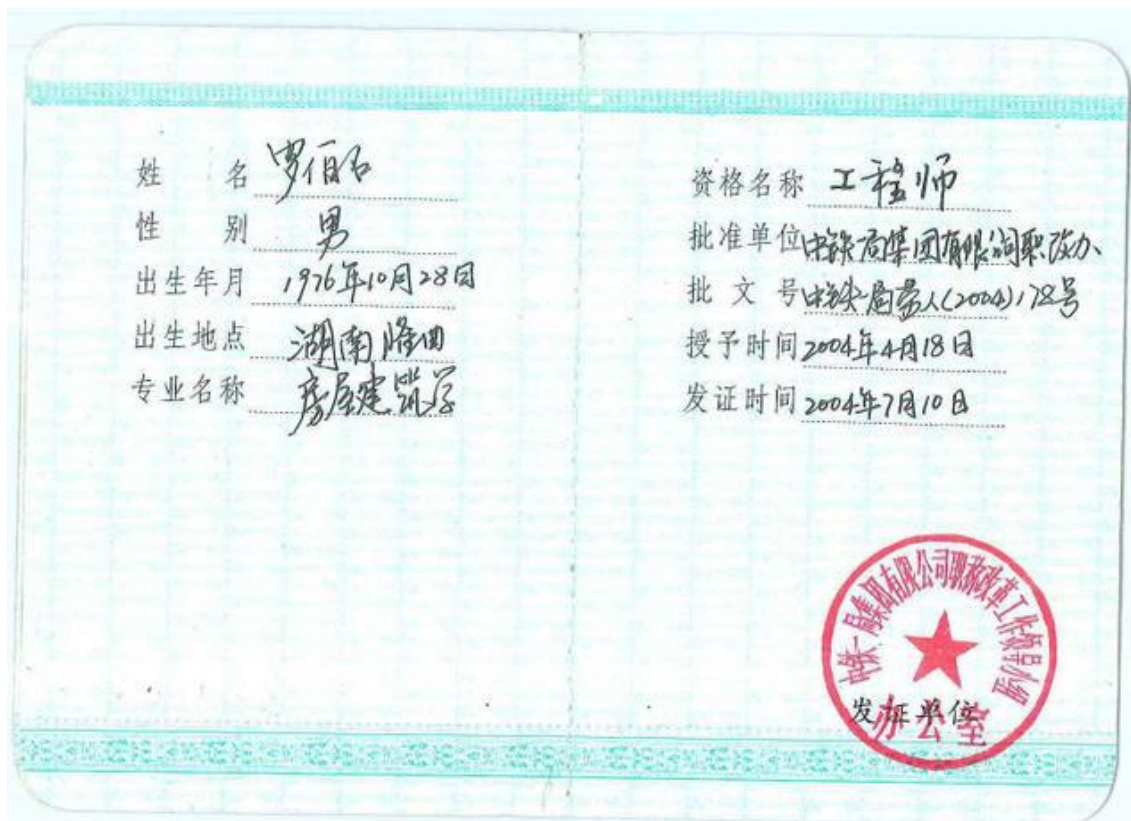 姓名 罗伯石
性别 男
出生年月 1976年10月28日
出生地点 湖南隆回
专业名称 房屋建筑学
资格名称 工程师
批准单位 中铁一局集团有限公司职改办
批文号 中铁一局劳人(2004)178号
授予时间 2004年4月18日
发证时间 2004年7月10日
中铁一局集团有限公司职称改革工作领导小组
发证单位
办公室